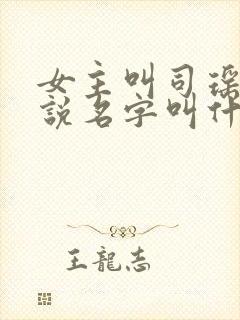 女主叫司瑶
說名字叫什
王龍志